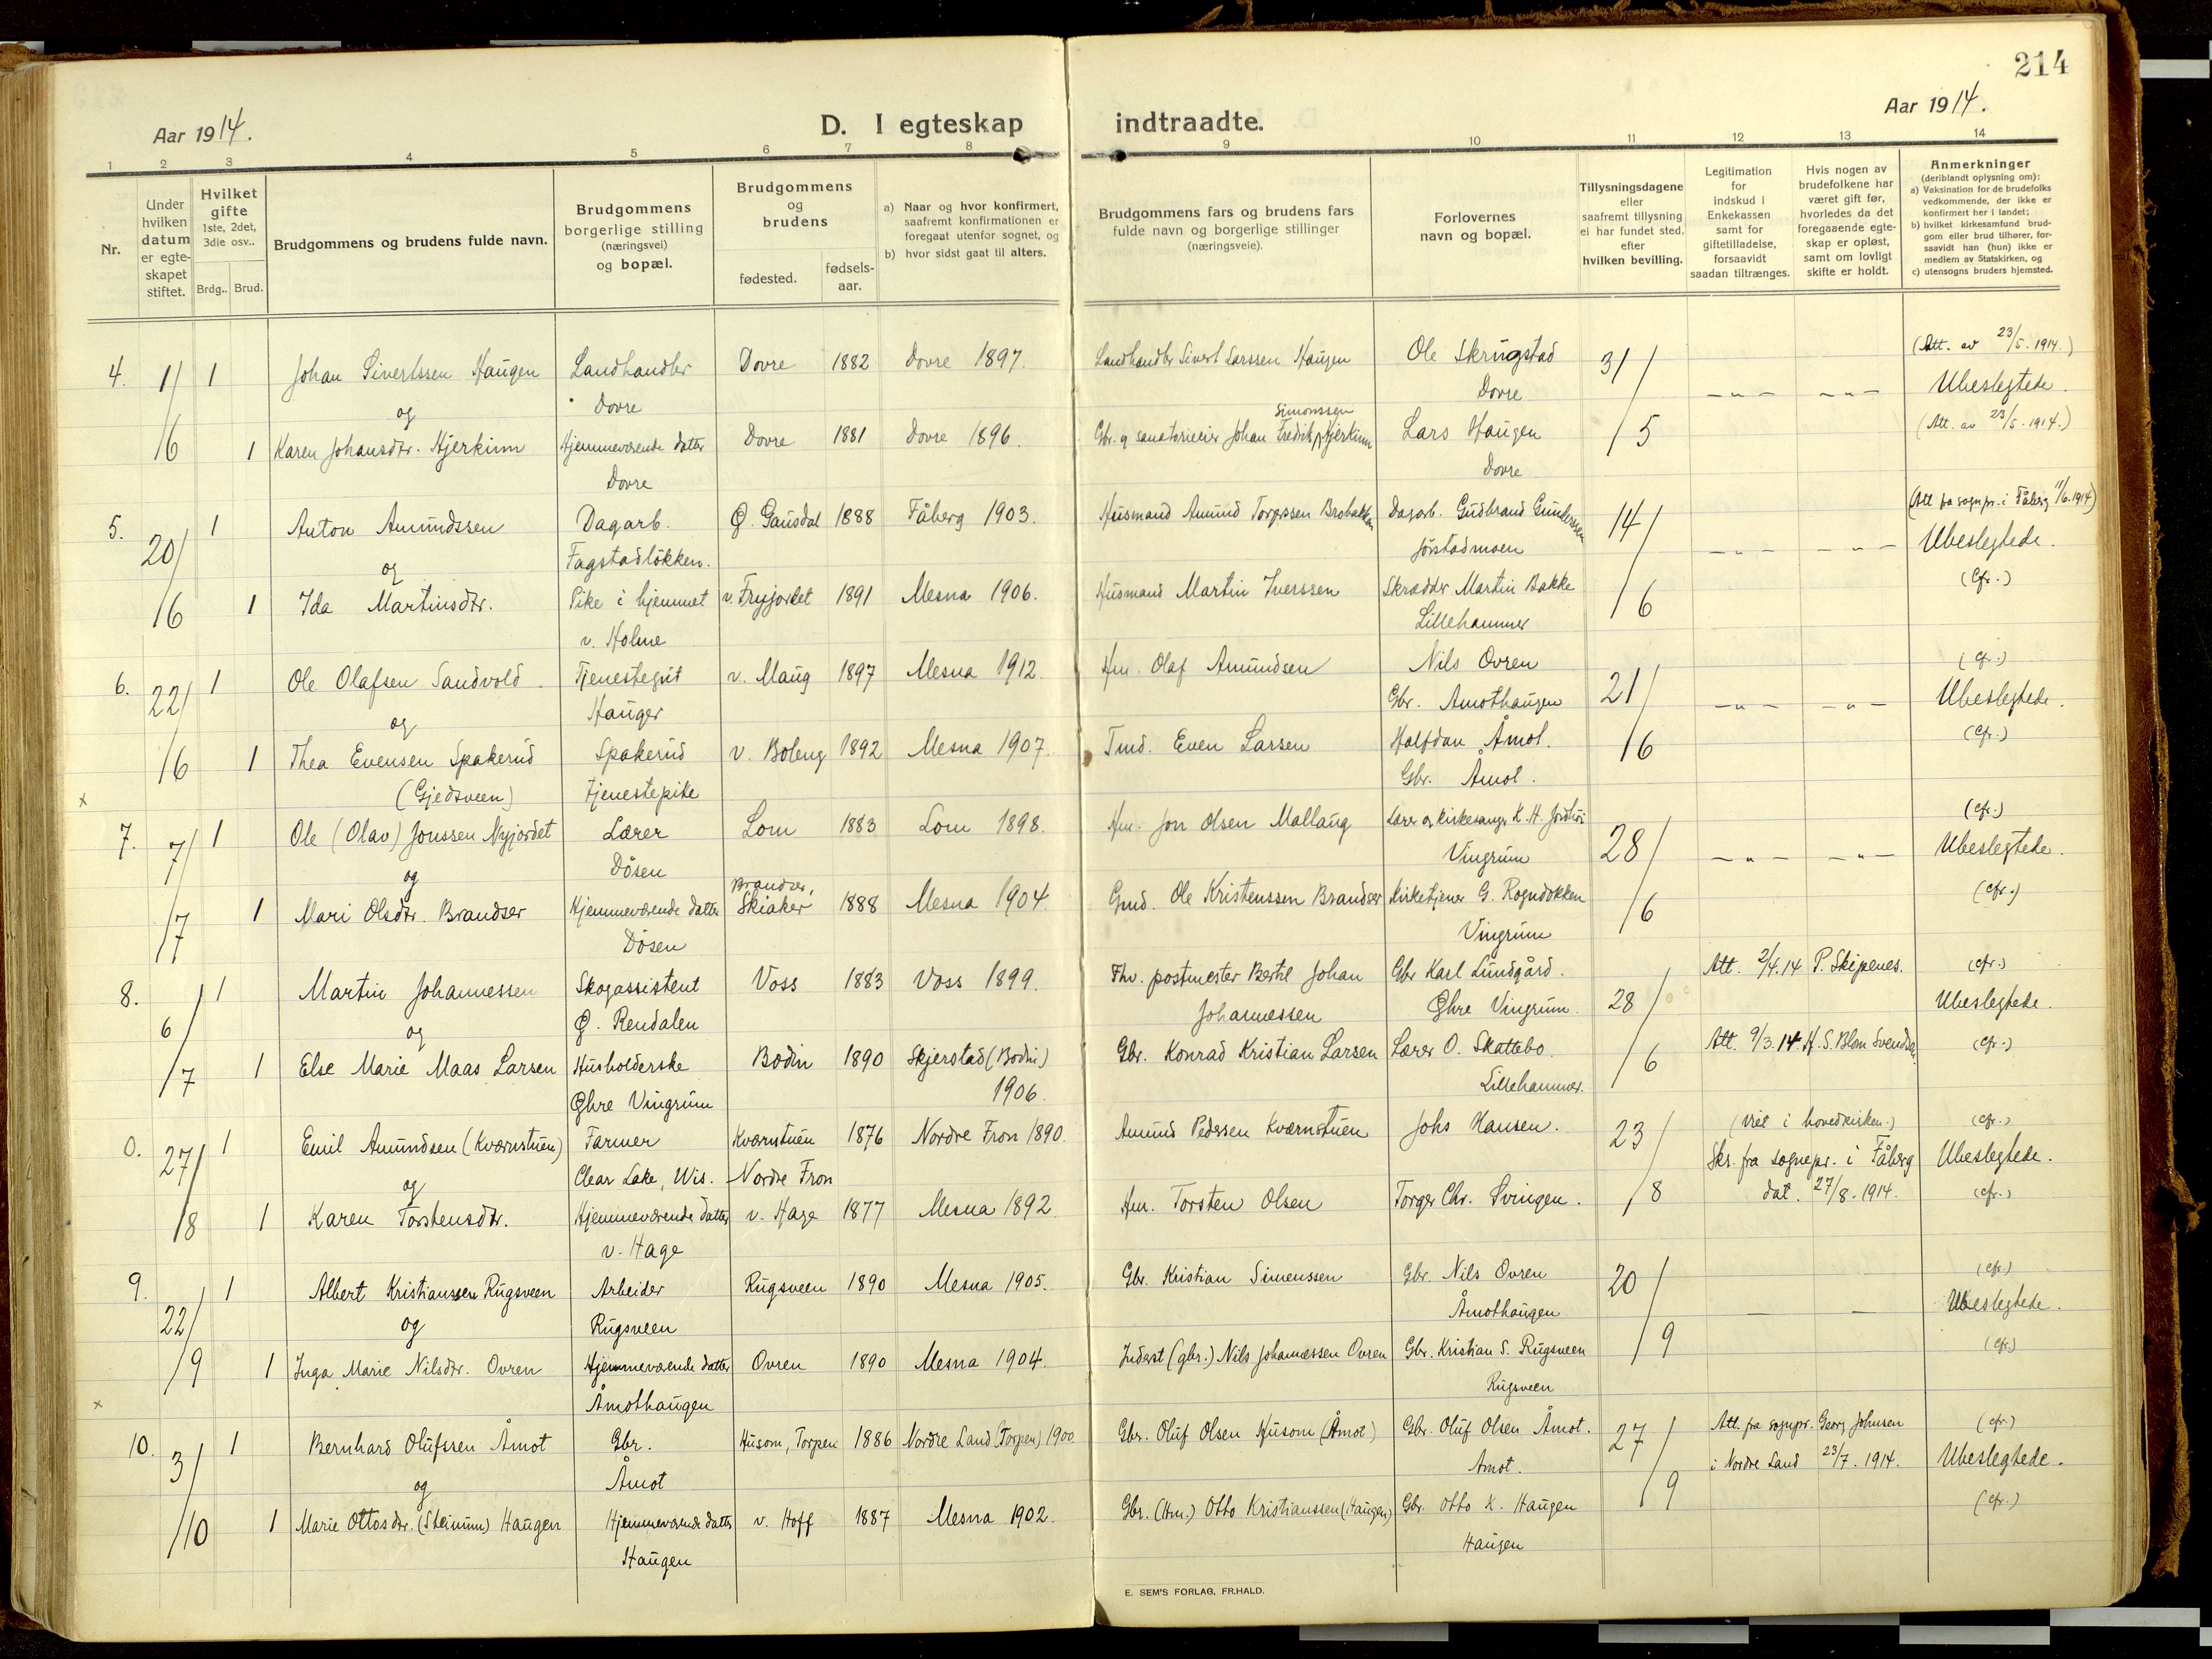 214
Aar 1914.
D. I egteskap indtraadte.
Aar 1914.
1 2 3 4 5 6 7 8 9 10 11 12 13 14
Nr.
Under hvilken datum er egteskapet stiftet.
Hvilket gifte 1ste, 2det, 3die osv..
Brdg.. Brud.
Brudgommens og brudens fulde navn.
Brudgommens borgerlige stilling (næringsvei) og bopæl.
Brudgommens og brudens
fødested. fødselsaar.
a) Naar og hvor konfirmert, saafremt konfirmationen er foregaat utenfor sognet, og
b) hvor sidst gaat til alters.
Brudgommens fars og brudens fars fulde navn og borgerlige stillinger (næringsveie).
Forlovernes navn og bopæl.
Tillysningsdagene eller saafremt tillysning ei har fundet sted, efter hvilken bevilling.
Legitimation for indskud i Enkekassen samt for giftetilladelse, forsaavidt saadan tiltrænges.
Hvis nogen av brudefolkene har været gift før, hvorledes da det foregaaende egteskap er opløst, samt om lovligt skifte er holdt.
Anmerkninger (deriblandt oplysning om):
a) Vaksination for de brudefolks vedkommende, der ikke er konfirmert her i landet;
b) hvilket kirkesamfund brudgom eller brud tilhører, forsaavidt han (hun) ikke er medlem av Statskirken, og
c) utensogns bruders hjemsted.
4. 1/ 1 Johan Sivertssen Haugen Landhandler Dovre 1882 Dovre 1897. Landhandler Sivert Larssen Haugen Ole Skrugstad 31/ (Att. av 23/5. 1914.)
og Dovre Dovre -"- -"- Ubeslegtede.
/6 1 Karen Johansdtr. Hjerkinn Hjemmeværende datter Dovre 1881 Dovre 1896. Gbr. og sanatorieeier Johan Fredrik Simonssen Hjerkinn Lars Haugen /5 (Att. av 23/5. 1914.)
Dovre Dovre
5. 20/ 1 Anton Amundssen Dagarb. Ø. Gausdal 1888 Fåberg 1903. Husmand Amund Torgerssen Brobakken Dagarb. Gudbrand Gunderssen 14/ (Att. fra sognepr. i Fåberg 11/6. 1914)
og Fagstadløkken. Jørstadmoen -"- -"- Ubeslegtede.
/6 1 Ida Martinsdtr. Pike i hjemmet v. Fryjordet 1891 Mesna 1906. Husmand Martin Iverssen Skrædder Martin Bakke /6 (Cfr.)
v. Holme Lillehammer
6. 22/ 1 Ole Olafsen Sandvold Tjenestegut v. Maug 1897 Mesna 1912. Hm. Olaf Amundsen Nils Ovren 21/ (cfr.)
og Hauger Gbr. Åmothaugen -"- -"- Ubeslegtede.
/6 1 Thea Evensen Spakerud Spakerud v. Boleng 1892 Mesna 1907. Tmd. Even Larsen Halfdan Åmot. /6 (cfr.)
(Gjedsveen) Tjenestepike Gbr. Åmot.
x
7. 7/ 1 Ole (Olav) Jonssen Nyjordet Lærer Lom 1883 Lom 1898. Hm. Jon Olsen Mallaug Lærer og kirkesanger K. H. 28/ (cfr.)
og Døsen Vingrum -"- -"- Ubeslegtede.
/7 1 Mari Olsdtr. Brandser Hjemmeværende datter Brandser, Skiaker 1888 Mesna 1904 Gmd. Ole Kristenssen Brandser Kirketjener G. Rogndokken /6 (cfr.)
Døsen Vingrum
8. 6/ 1 Martin Johannessen Skogassistent Voss 1883 Voss 1899. Fhv. postmester Bertil Johan Gbr Karl Lundgård. 28/ Att. 2/4.14 P. Skipenes. (cfr.)
og Ø. Rendalen Johannessen Øhre Vingrum. Ubeslegtede.
/7 1 Else Marie Maas Larsen Husholderske Bodin 1890 Skjerstad (Bodin) Gbr. Konrad Kristian Larsen Lærer O. Skattebo. /6 Att. 9/3.14 H. S. Blom Svendsen (cfr.)
Øhre Vingrum 1906. Lillehammer.
0. 27/ 1 Emil Amundsen (Kværnstuen) Farmer Kværnstuen 1876 Nordre Fron 1890. Amund Pedersen Kværnstuen Johs Hansen. 23/ (Viet i hovedkirken.) (cfr.)
og Clear Lake, Wis. Nordre Fron Skr. fra sognepr. i Fåberg Ubeslegtede.
/8 1 Karen Torstensdtr. Hjemmeværende datter v. Hage 1877 Mesna 1892 Hm. Torsten Olsen Torger Chr. Svingen. /8 dat. 27/8. 1914. (cfr.)
v. Hage
9. 22/ 1 Albert Kristianssen Rugsveen Arbeider Rugsveen 1890 Mesna 1905. Gbr. Kristian Simenssen Gbr. Nils Ovren 20/ (cfr.)
og Rugsveen Åmothaugen — — Ubeslegtede.
/9 1 Inga Marie Nilsdtr. Ovren Hjemmeværende datter Ovren 1890 Mesna 1904. Inderst (gbr.) Nils Johannessen Ovren Gbr. Kristian S. Rugsveen /9 (cfr.)
x Åmothaugen Rugsveen
10. 3/ 1 Bernhard Olufssen Åmot Gbr. Husom, Torpen 1886 Nordre Land (Torpen) 1900 Gbr. Oluf Olsen Husom (Åmot) Gbr. Oluf Olsen Åmot. 27/ Att. fra sognepr. Georg Johnsen (cfr.)
og Åmot Åmot. i Nordre Land 23/7. 1914. Ubeslegtede.
/10 1 Marie Ottosdtr. (Steinum) Haugen Hjemmeværende datter v. Hoff 1887 Mesna 1902. Gbr. (Hm.) Otto Kristianssen (Haugen) Gbr. Otto K. Haugen /9 (cfr.)
Haugen Haugen
E. SEM'S FORLAG, FR.HALD.